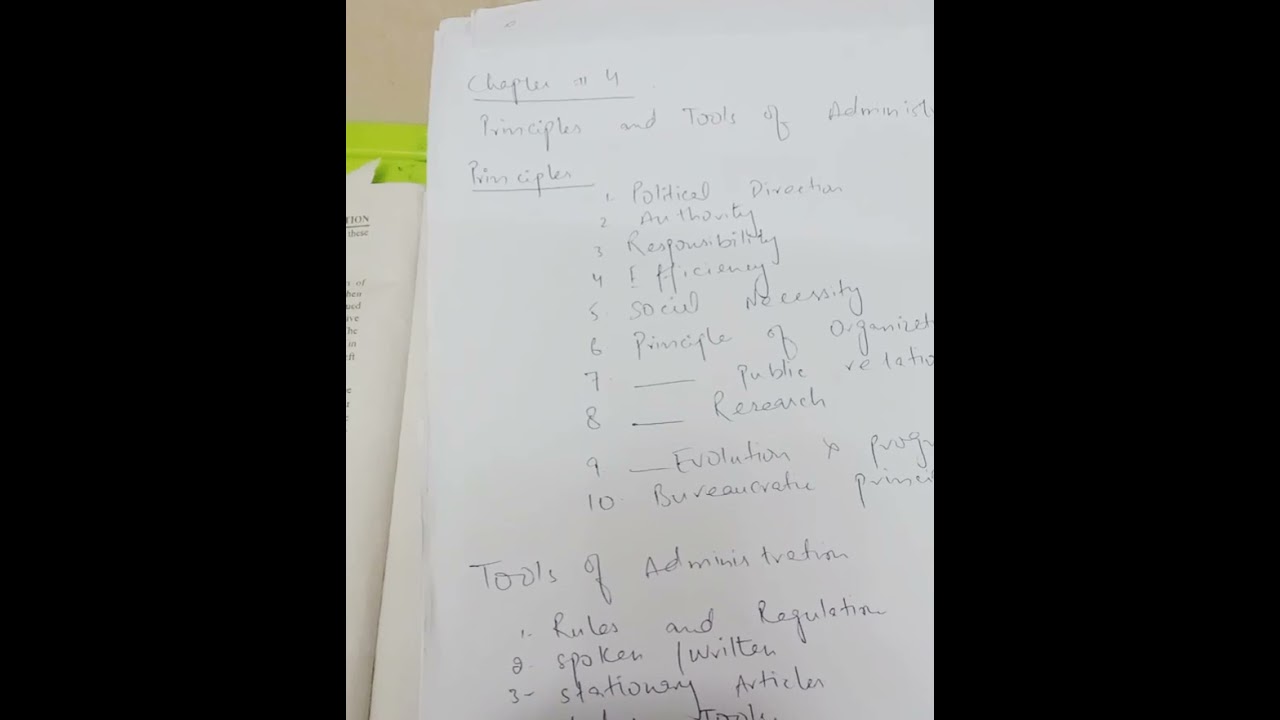 Chapter # 4
Principles and Tools of Administ
Principles
1. Political Direction
2 Authority
3 Responsibility
4 Efficiency
5. Social Necessity
6 Principle of Organizat
7. — Public relatio
8 — Research
9 — Evolution & progr
10. Bureaucratic princi
Tools of Administration
1- Rules and Regulation
2- spoken /written
3- stationary Articles
Tools
TION
these
of
hen
ued
ive
he
in
ft